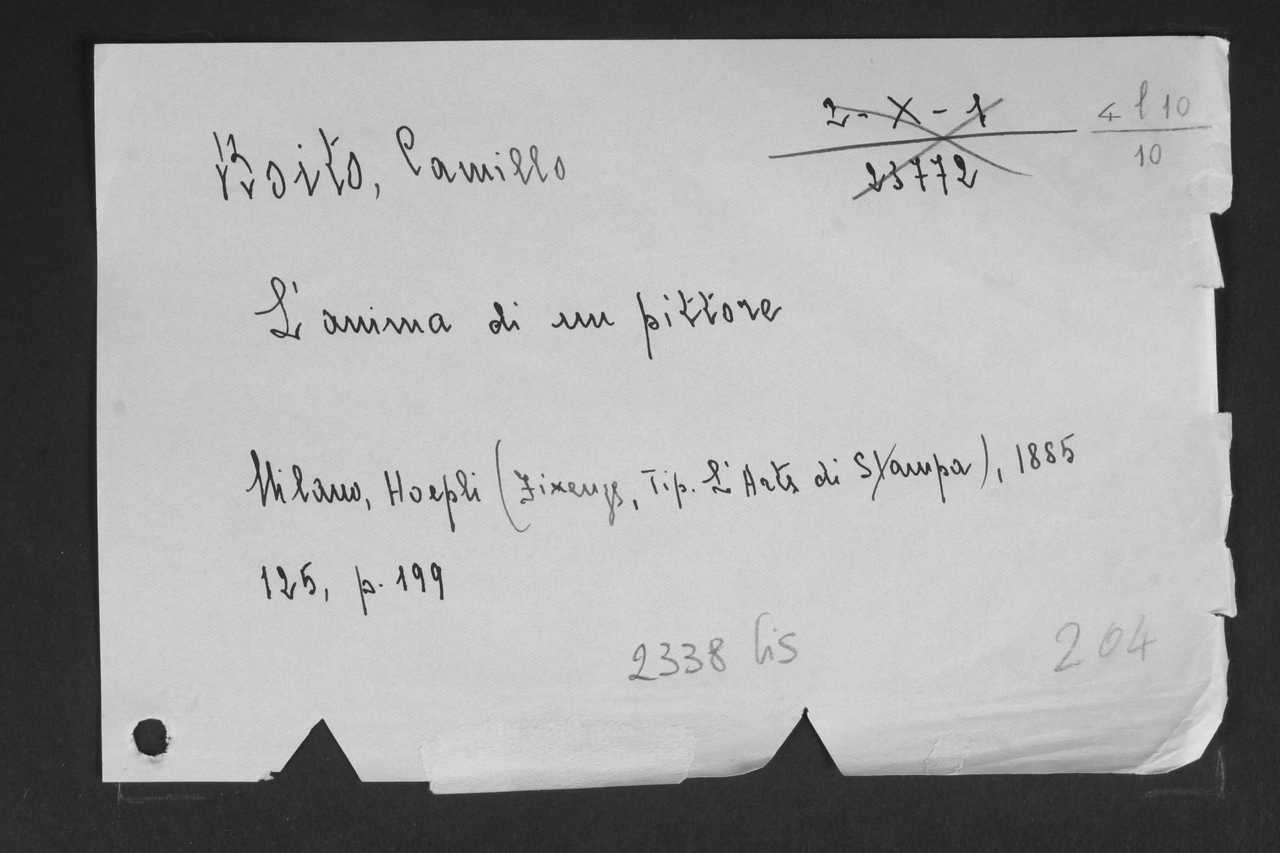 2-X-1
23772
4 l 10
10
Boito, Camillo
L'anima di un pittore
Milano, Hoepli (Firenze, Tip. L'Arte di Stampa), 1885
125, p. 199
2338 bis
204